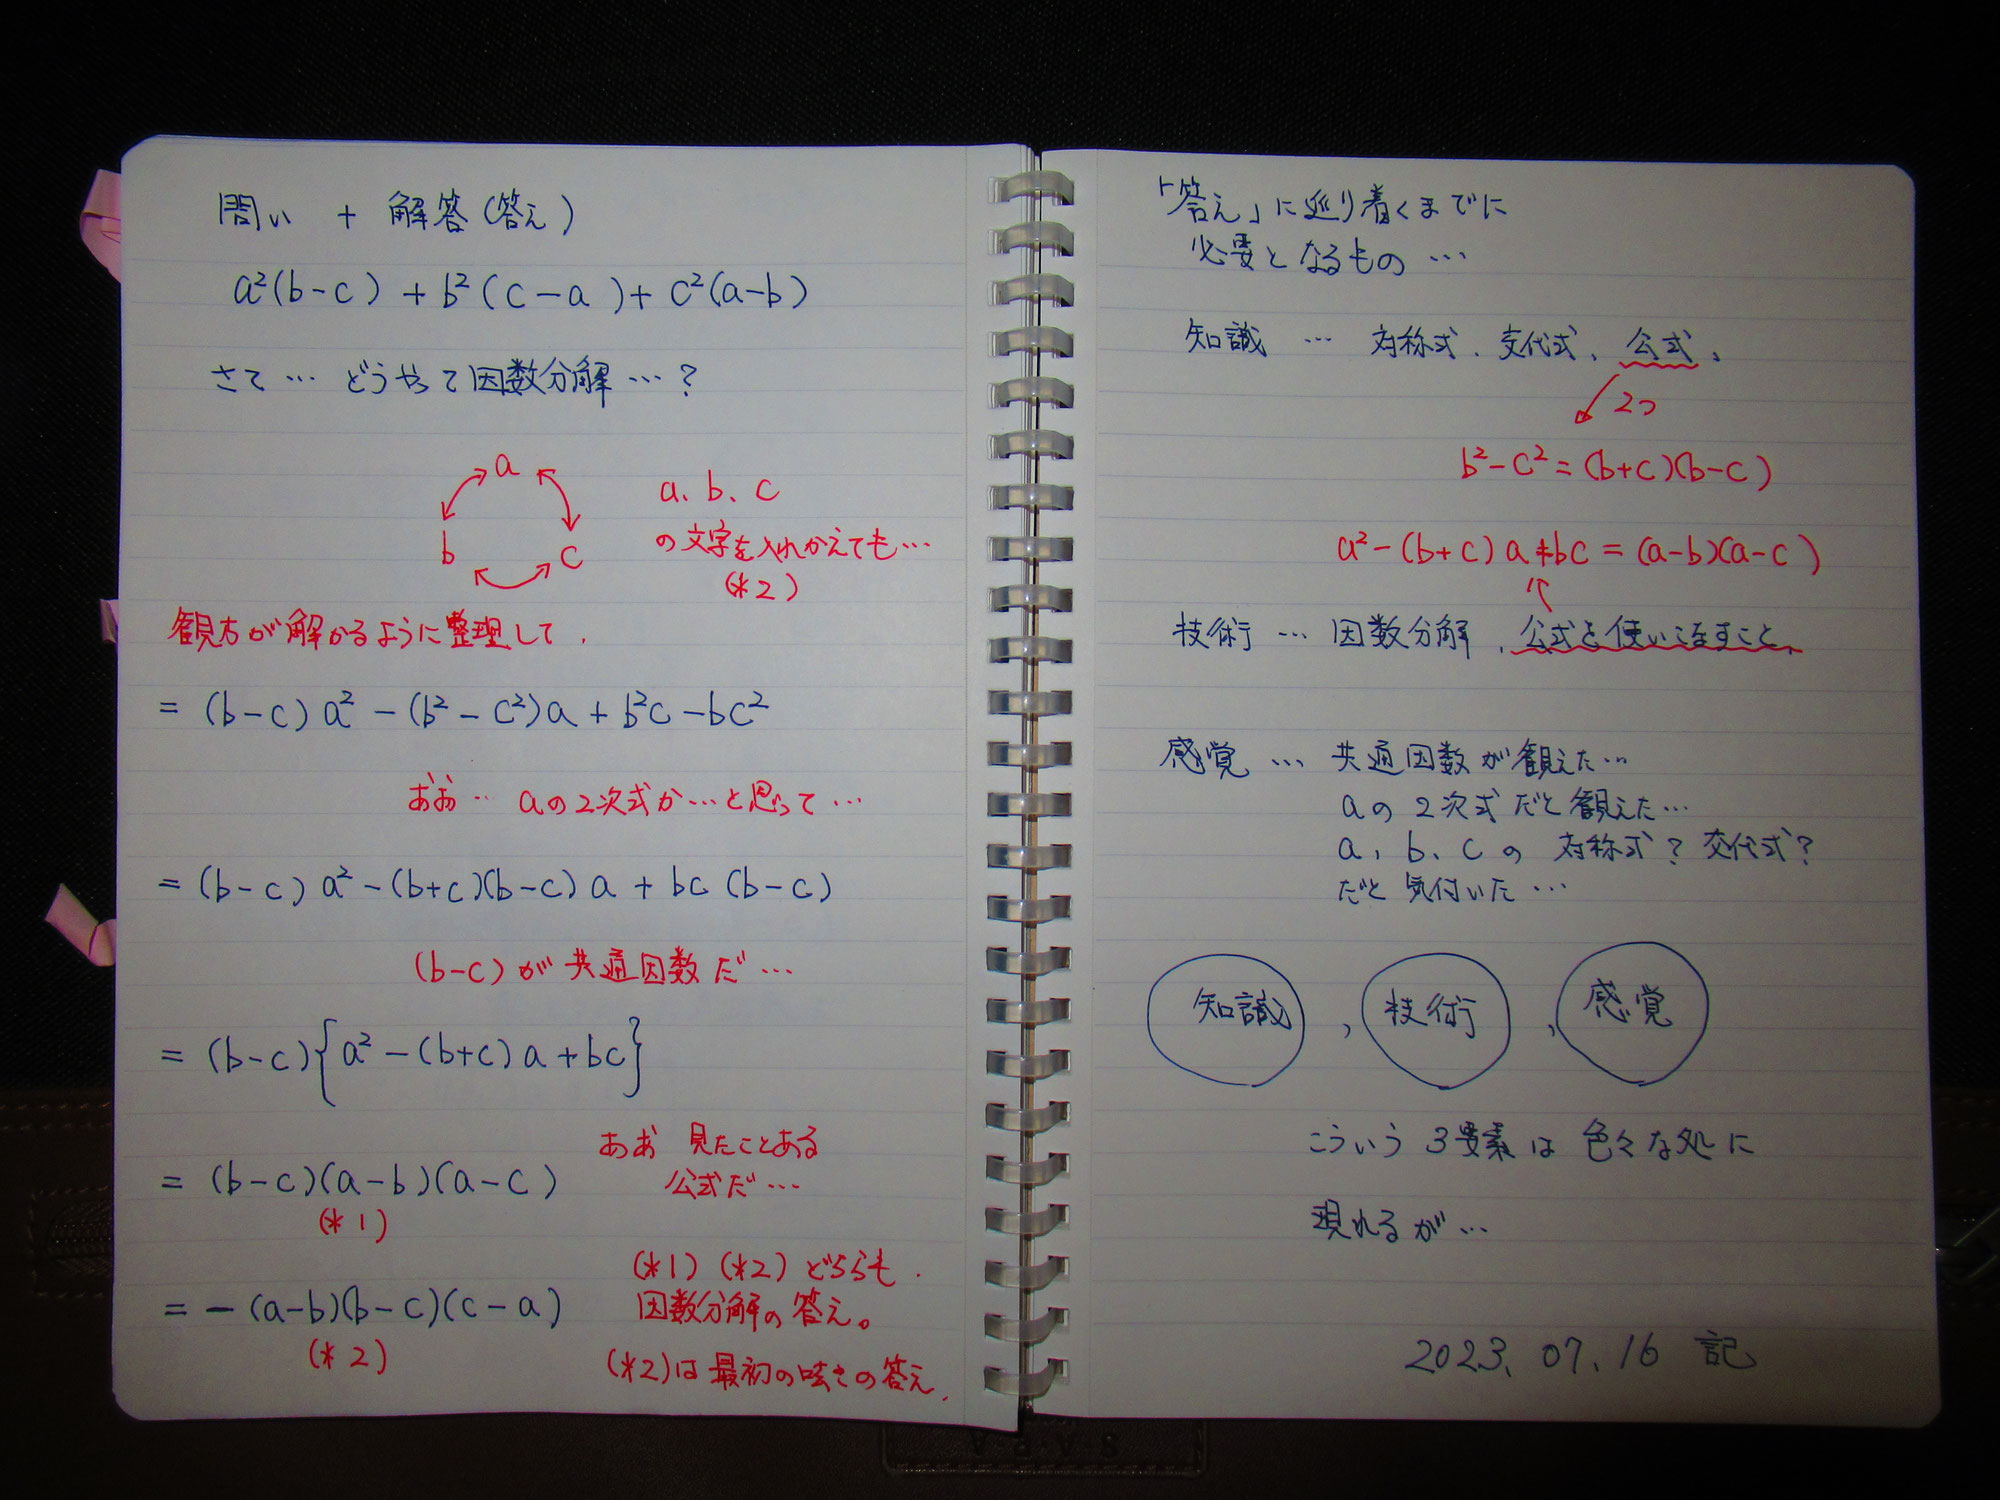 問い + 解答(答え)
a²(b-c) + b²(c-a) + c²(a-b)
さて… どうやって因数分解…?
a
b
c
a、b、c
の文字を入れかえても…
(*2)
観方が解かるように整理して、
= (b-c)a² - (b²-c²)a + b²c - bc²
おお… aの2次式か…と思って…
= (b-c)a² - (b+c)(b-c)a + bc(b-c)
(b-c)が共通因数だ…
= (b-c){a² - (b+c)a + bc}
ああ 見たことある
公式だ…
= (b-c)(a-b)(a-c)
(*1)
(*1) (*2) どちらも、
因数分解の答え。
= -(a-b)(b-c)(c-a)
(*2)
(*2)は最初の呟きの答え、
「答え」に巡り着くまでに
必要となるもの…
知識 … 対称式、交代式、公式、
2つ
b²-c² = (b+c)(b-c)
a²-(b+c)a+bc = (a-b)(a-c)
技術 … 因数分解、公式を使いこなすこと、
感覚 … 共通因数が観えた…
aの2次式だと観えた…
a、b、cの 対称式? 交代式?
だと気付いた…
知識 , 技術 , 感覚
こういう3要素は色々な処に
現れるが…
2023.07.16 記